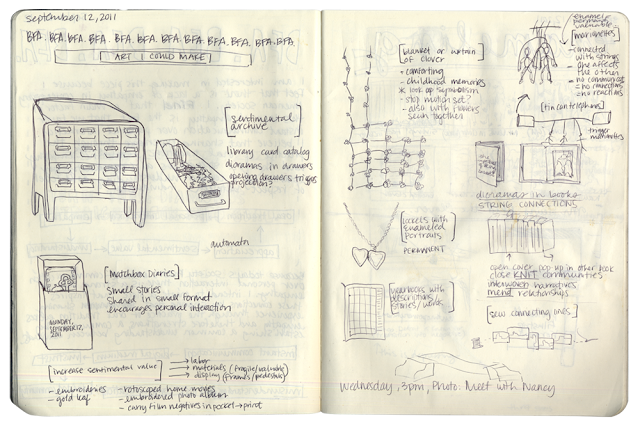 september 12, 2011
BFA. BFA. BFA. BFA. BFA. BFA. BFA. BFA. BFA. BFA. BFA. BFA.
ART I COULD MAKE
sentimental
archive
library card catalog
dioramas in drawers
opening drawers triggers
projection?
automata
matchbox diaries
small stories
shared in small format
encourages personal interaction
MONDAY,
SEPTEMBER 12,
2011
increase sentimental value
labor
materials (fragile/valuable)
display (frames/pedestals)
- embroideries
- gold leaf
- rotoscoped home movies
- embroidered photo album
- carry film negatives in pocket → print
blanket or curtain
of clover
- comforting
- childhood memories
* look up symbolism
- stop motion set?
- also with flowers
sewn together
lockets with
enameled
portraits
PERMANENT
yearbooks with
descriptions/
stories/works
enamel
permanent
valuable
marionettes
- connected
with strings
- one affects
the other
- no connections
- no reactions
tin can telephones
trigger
marionettes
dioramas in books
STRING CONNECTIONS
open cover, pop up in other book
close KNIT communities
interwoven narratives
mend relationships
sew connecting ones
Wednesday, 3pm, Photo: Meet with Nancy